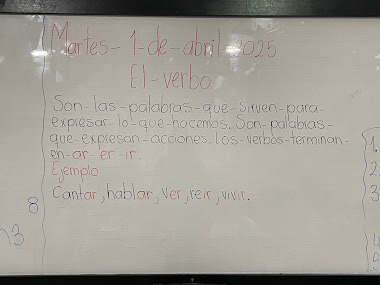 Martes-1-de-abril-2025
El-verbo
Son-las-palabras-que-sirven-para-
expresar-lo-que-hacemos. Son-palabras-
que-expresan-acciones. Los-verbos-terminan-
en-ar-er-ir.
Ejemplo
Cantar, hablar, ver, reír, vivir.
8
3
1.
2.
3